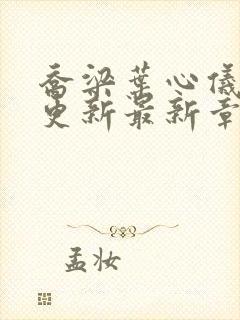 乔梁叶心仪
更新最新章
孟妆